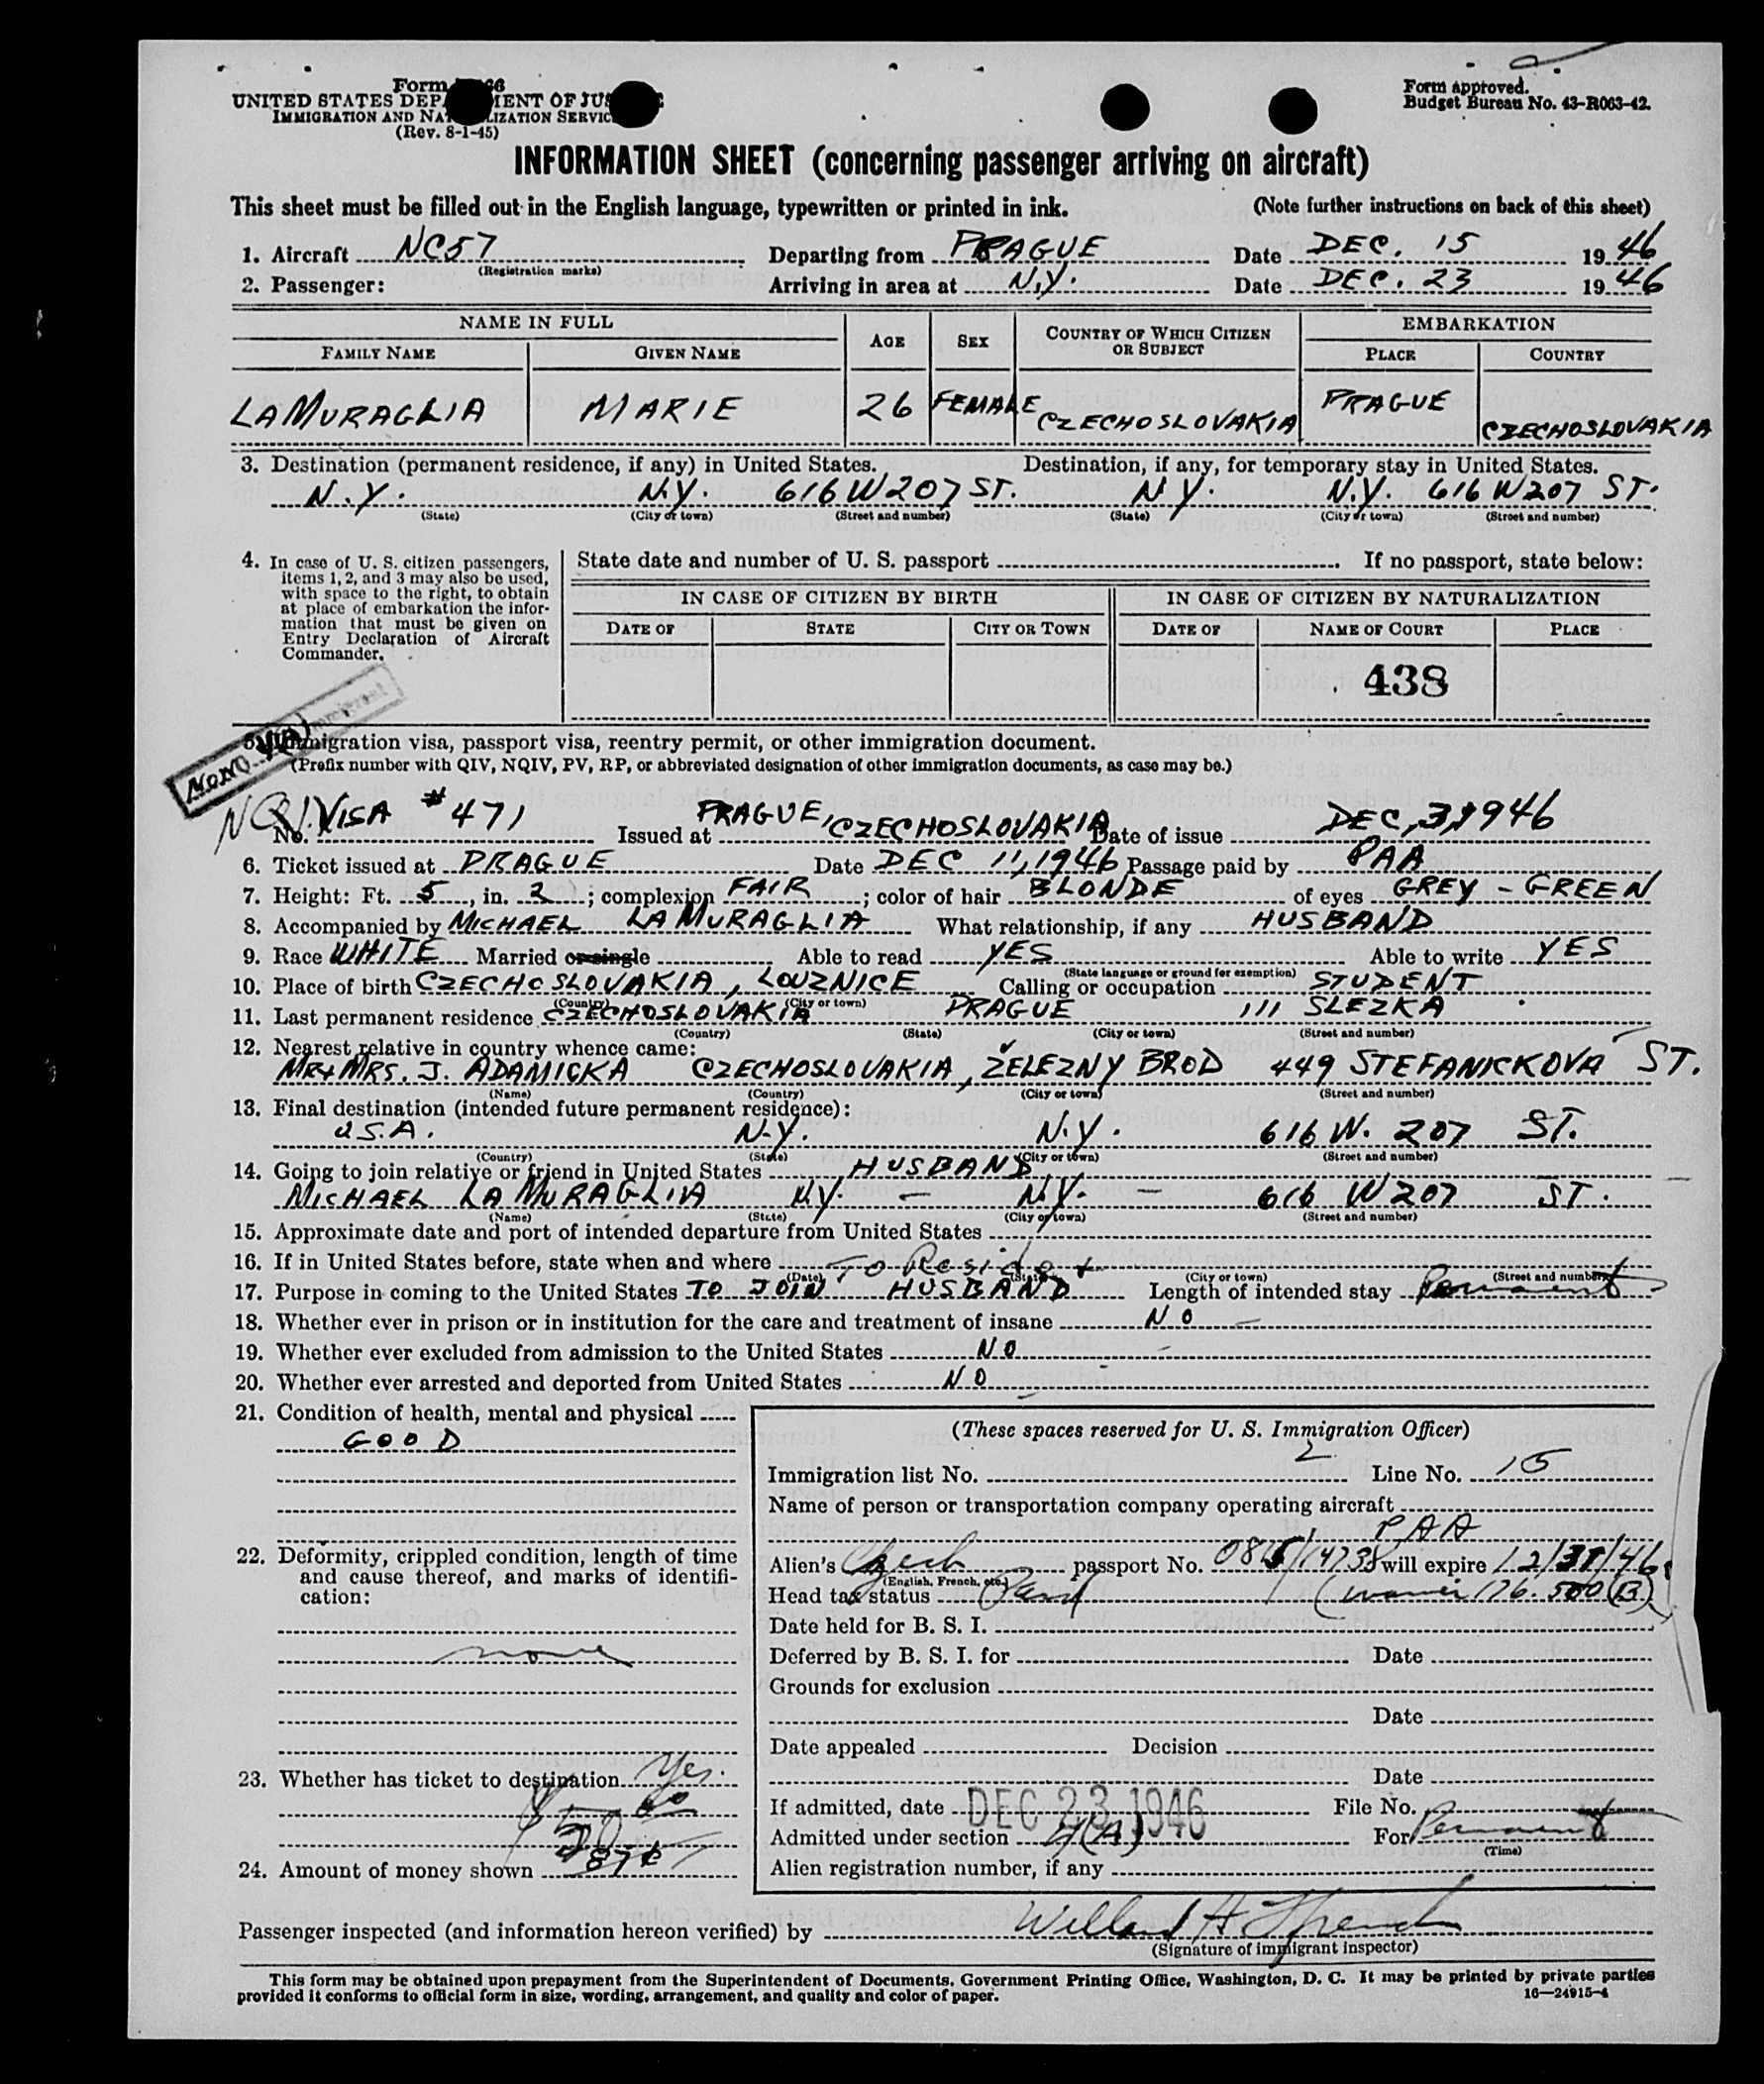 Form 66
UNITED STATES DEP MENT OF JUS
IMMIGRATION AND NA LIZATION SERVIC
(Rev. 8-1-45)
Form approved.
Budget Bureau No. 43-R063-42.
INFORMATION SHEET (concerning passenger arriving on aircraft)
This sheet must be filled out in the English language, typewritten or printed in ink. (Note further instructions on back of this sheet)
1. Aircraft NC57 Departing from PRAGUE Date DEC. 15 1946
(Registration marks)
2. Passenger: Arriving in area at N.Y. Date DEC. 23 1946
NAME IN FULL AGE SEX COUNTRY OF WHICH CITIZEN OR SUBJECT EMBARKATION
FAMILY NAME GIVEN NAME PLACE COUNTRY
LAMURAGLIA MARIE 26 FEMALE CZECHOSLOVAKIA PRAGUE CZECHOSLOVAKIA
3. Destination (permanent residence, if any) in United States. Destination, if any, for temporary stay in United States.
N.Y. N.Y. 616 W 207 ST. N Y. N.Y. 616 W 207 ST.
(State) (City or town) (Street and number) (State) (City or town) (Street and number)
4. In case of U. S. citizen passengers, items 1, 2, and 3 may also be used, with space to the right, to obtain at place of embarkation the information that must be given on Entry Declaration of Aircraft Commander.
State date and number of U. S. passport If no passport, state below:
IN CASE OF CITIZEN BY BIRTH IN CASE OF CITIZEN BY NATURALIZATION
DATE OF STATE CITY OR TOWN DATE OF NAME OF COURT PLACE
438
5. Immigration visa, passport visa, reentry permit, or other immigration document.
(Prefix number with QIV, NQIV, PV, RP, or abbreviated designation of other immigration documents, as case may be.)
No. VISA # 471 Issued at PRAGUE, CZECHOSLOVAKIA Date of issue DEC, 3, 1946
6. Ticket issued at PRAGUE Date DEC 11, 1946 Passage paid by PAA
7. Height: Ft. 5, in. 2; complexion FAIR; color of hair BLONDE of eyes GREY - GREEN
8. Accompanied by MICHAEL LAMURAGLIA What relationship, if any HUSBAND
9. Race WHITE Married or single Able to read YES Able to write YES
(State language or ground for exemption)
10. Place of birth CZECHOSLOVAKIA, LOUZNICE Calling or occupation STUDENT
(Country) (City or town)
11. Last permanent residence CZECHOSLOVAKIA PRAGUE 111 SLEZKA
(Country) (State) (City or town) (Street and number)
12. Nearest relative in country whence came:
MR+MRS. J. ADAMICKA CZECHOSLOVAKIA, ŽELEZNY BROD 449 STEFANICKOVA ST.
(Name) (Country) (City or town) (Street and number)
13. Final destination (intended future permanent residence):
U.S.A. N.Y. N.Y. 616 W. 207 ST.
(Country) (State) (City or town) (Street and number)
14. Going to join relative or friend in United States HUSBAND
MICHAEL LA MURAGLIA N.Y. — N.Y. — 616 W 207 ST.
(Name) (State) (City or town) (Street and number)
15. Approximate date and port of intended departure from United States
16. If in United States before, state when and where To Reside +
(Date) (State) (City or town) (Street and number)
17. Purpose in coming to the United States TO JOIN HUSBAND Length of intended stay Permanent
18. Whether ever in prison or in institution for the care and treatment of insane NO
19. Whether ever excluded from admission to the United States NO
20. Whether ever arrested and deported from United States NO
21. Condition of health, mental and physical
GOOD
22. Deformity, crippled condition, length of time and cause thereof, and marks of identification:
none
23. Whether has ticket to destination Yes.
24. Amount of money shown
(These spaces reserved for U. S. Immigration Officer)
Immigration list No. 2 Line No. 15
Name of person or transportation company operating aircraft
PAA
Alien's Czech passport No. will expire 12/31/46
(English, French, etc.)
Head tax status Paid (waiver 176.500 (B)
Date held for B. S. I.
Deferred by B. S. I. for Date
Grounds for exclusion
Date
Date appealed Decision
Date
If admitted, date DEC 23 1946 File No.
Admitted under section 4(A) For Permanent
(Time)
Alien registration number, if any
Passenger inspected (and information hereon verified) by
(Signature of immigrant inspector)
This form may be obtained upon prepayment from the Superintendent of Documents, Government Printing Office, Washington, D. C. It may be printed by private parties
provided it conforms to official form in size, wording, arrangement, and quality and color of paper.
16—24915-4